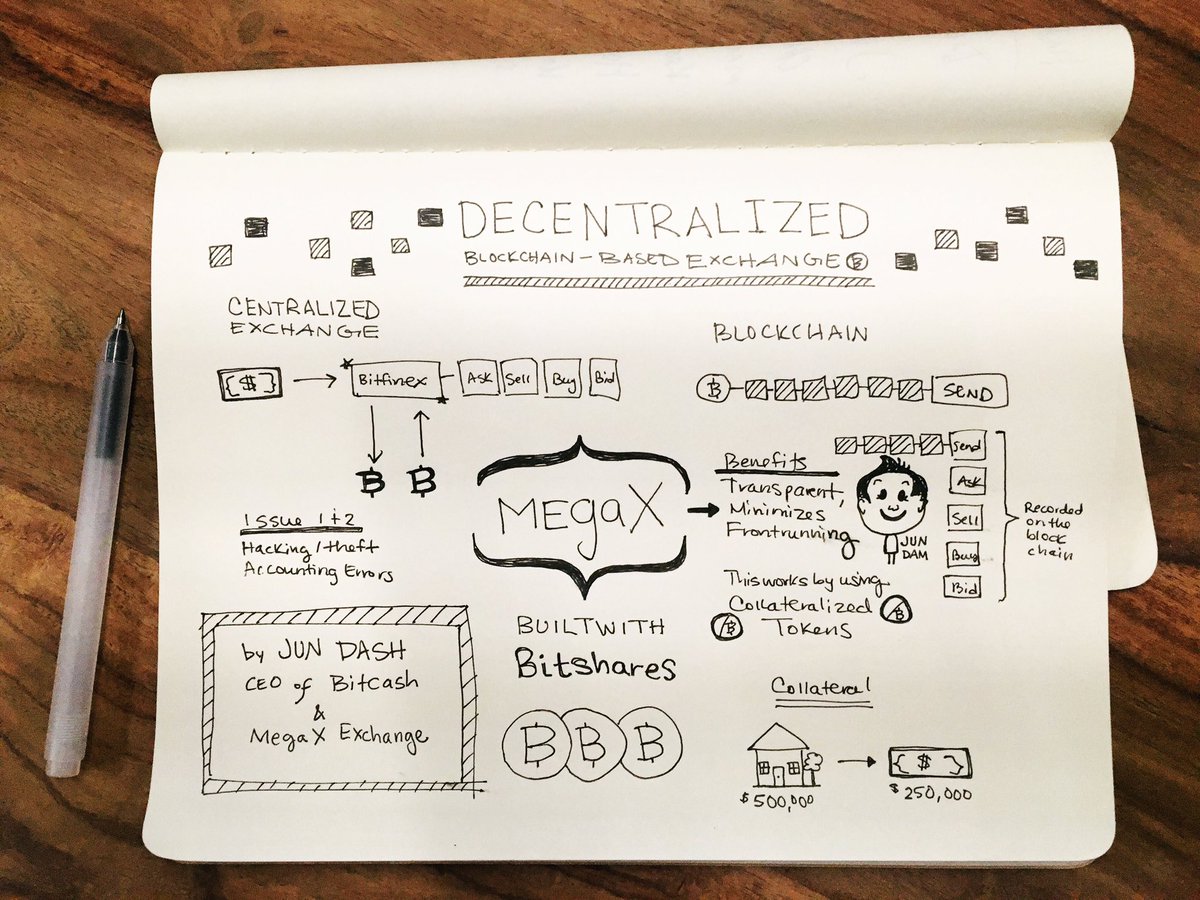 DECENTRALIZED
BLOCKCHAIN-BASED EXCHANGE ₿
CENTRALIZED
EXCHANGE
{$}
Bitfinex
Ask
Sell
Buy
Bid
₿ ₿
Issue 1+2
Hacking/theft
Accounting Errors
by JUN DASH
CEO of Bitcash
&
MegaX Exchange
MegaX
BUILT WITH
Bitshares
₿ ₿ ₿
BLOCKCHAIN
₿
SEND
Benefits
Transparent,
Minimizes
Frontrunning
JUN
DAM
Send
Ask
Sell
Buy
Bid
Recorded
on the
block
chain
This works by using
Collateralized ₿
₿ Tokens
Collateral
$500,000
{$}
$250,000